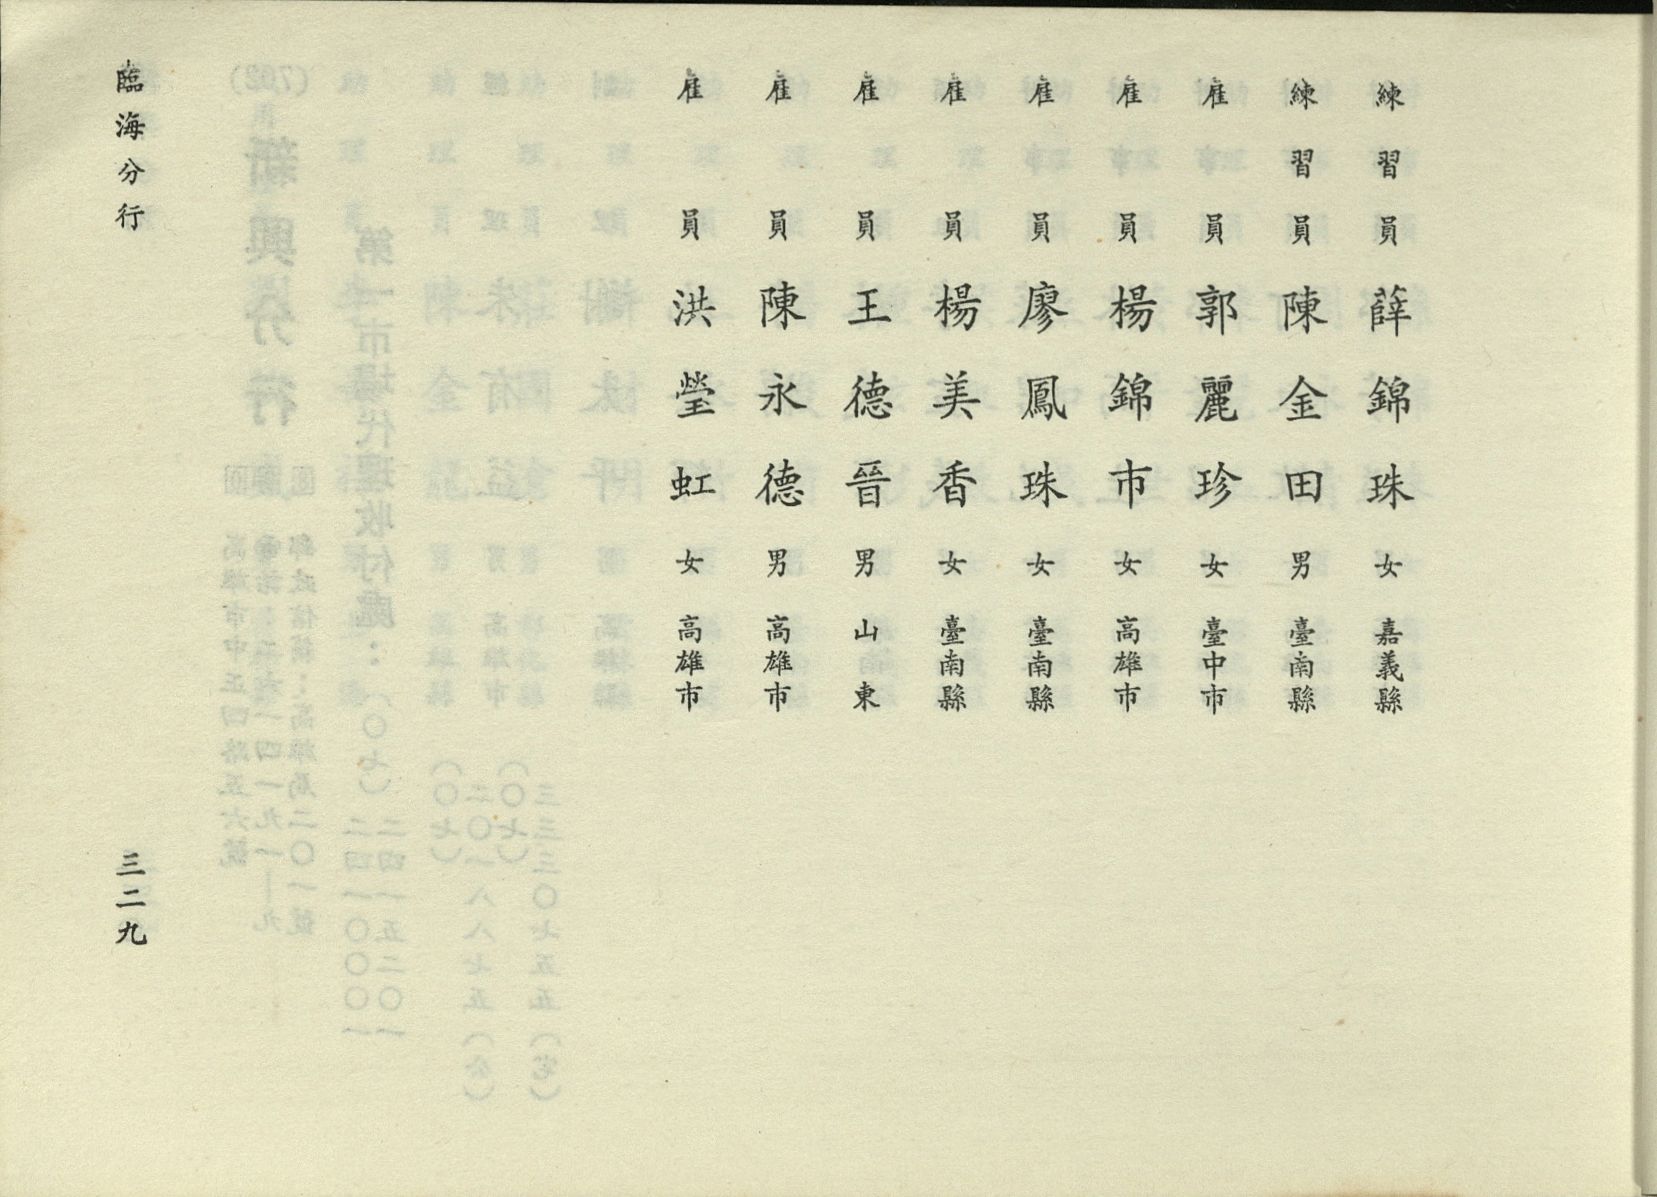 練習員 薛錦珠 女 嘉義縣
練習員 陳金田 男 臺南縣
雇員 郭麗珍 女 臺中市
雇員 楊錦市 女 高雄市
雇員 廖鳳珠 女 臺南縣
雇員 楊美香 女 臺南縣
雇員 王德晉 男 山東
雇員 陳永德 男 高雄市
雇員 洪瑩虹 女 高雄市
臨海分行
三二九